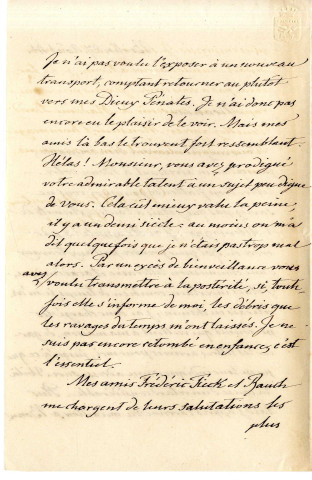 Je n'ai pas voulu l'exposer à un nouveau
transport, comptant retourner au plutôt
vers mes Dieux Pénates. Je n'ai donc pas
encore eu le plaisir de le voir. Mais mes
amis là bas le trouvent fort ressemblant.
Hélas! Monsieur, vous avez prodigué
votre admirable talent à un sujet peu digne
de vous. Cela eût mieux valu la peine,
il y a un demi siècle: au moins on m'a
dit quelquefois que je n'étais pas trop mal
alors. Par un excès de bienveillance vous
avez voulu transmettre à la postérité, si, tout-
fois elle s'informe de moi, les débris que
les ravages du temps m'ont laissés. Je ne
suis pas encore retombé en enfance, c'est
l'essentiel.
Mes amis Frédéric Tieck et Rauch
me chargent de leurs salutations les
plus